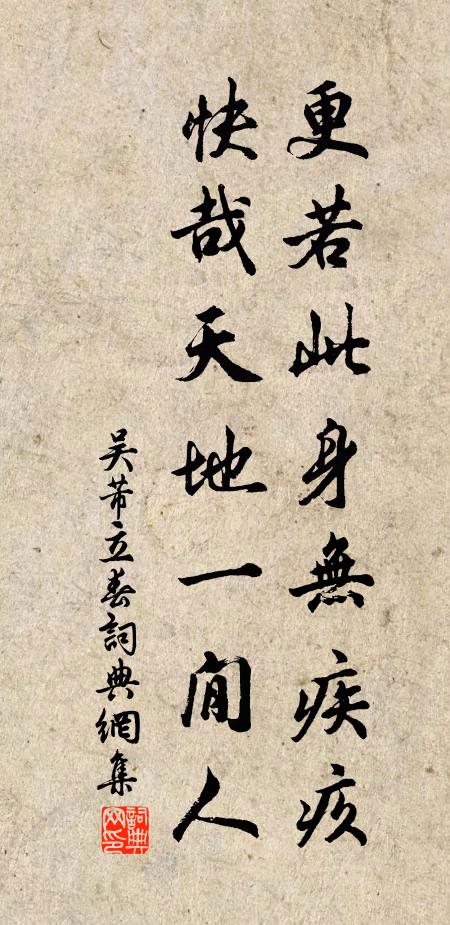 更若此身無疾疢
快哉天地一閒人
吳芾立春詞典網集
詞典網印